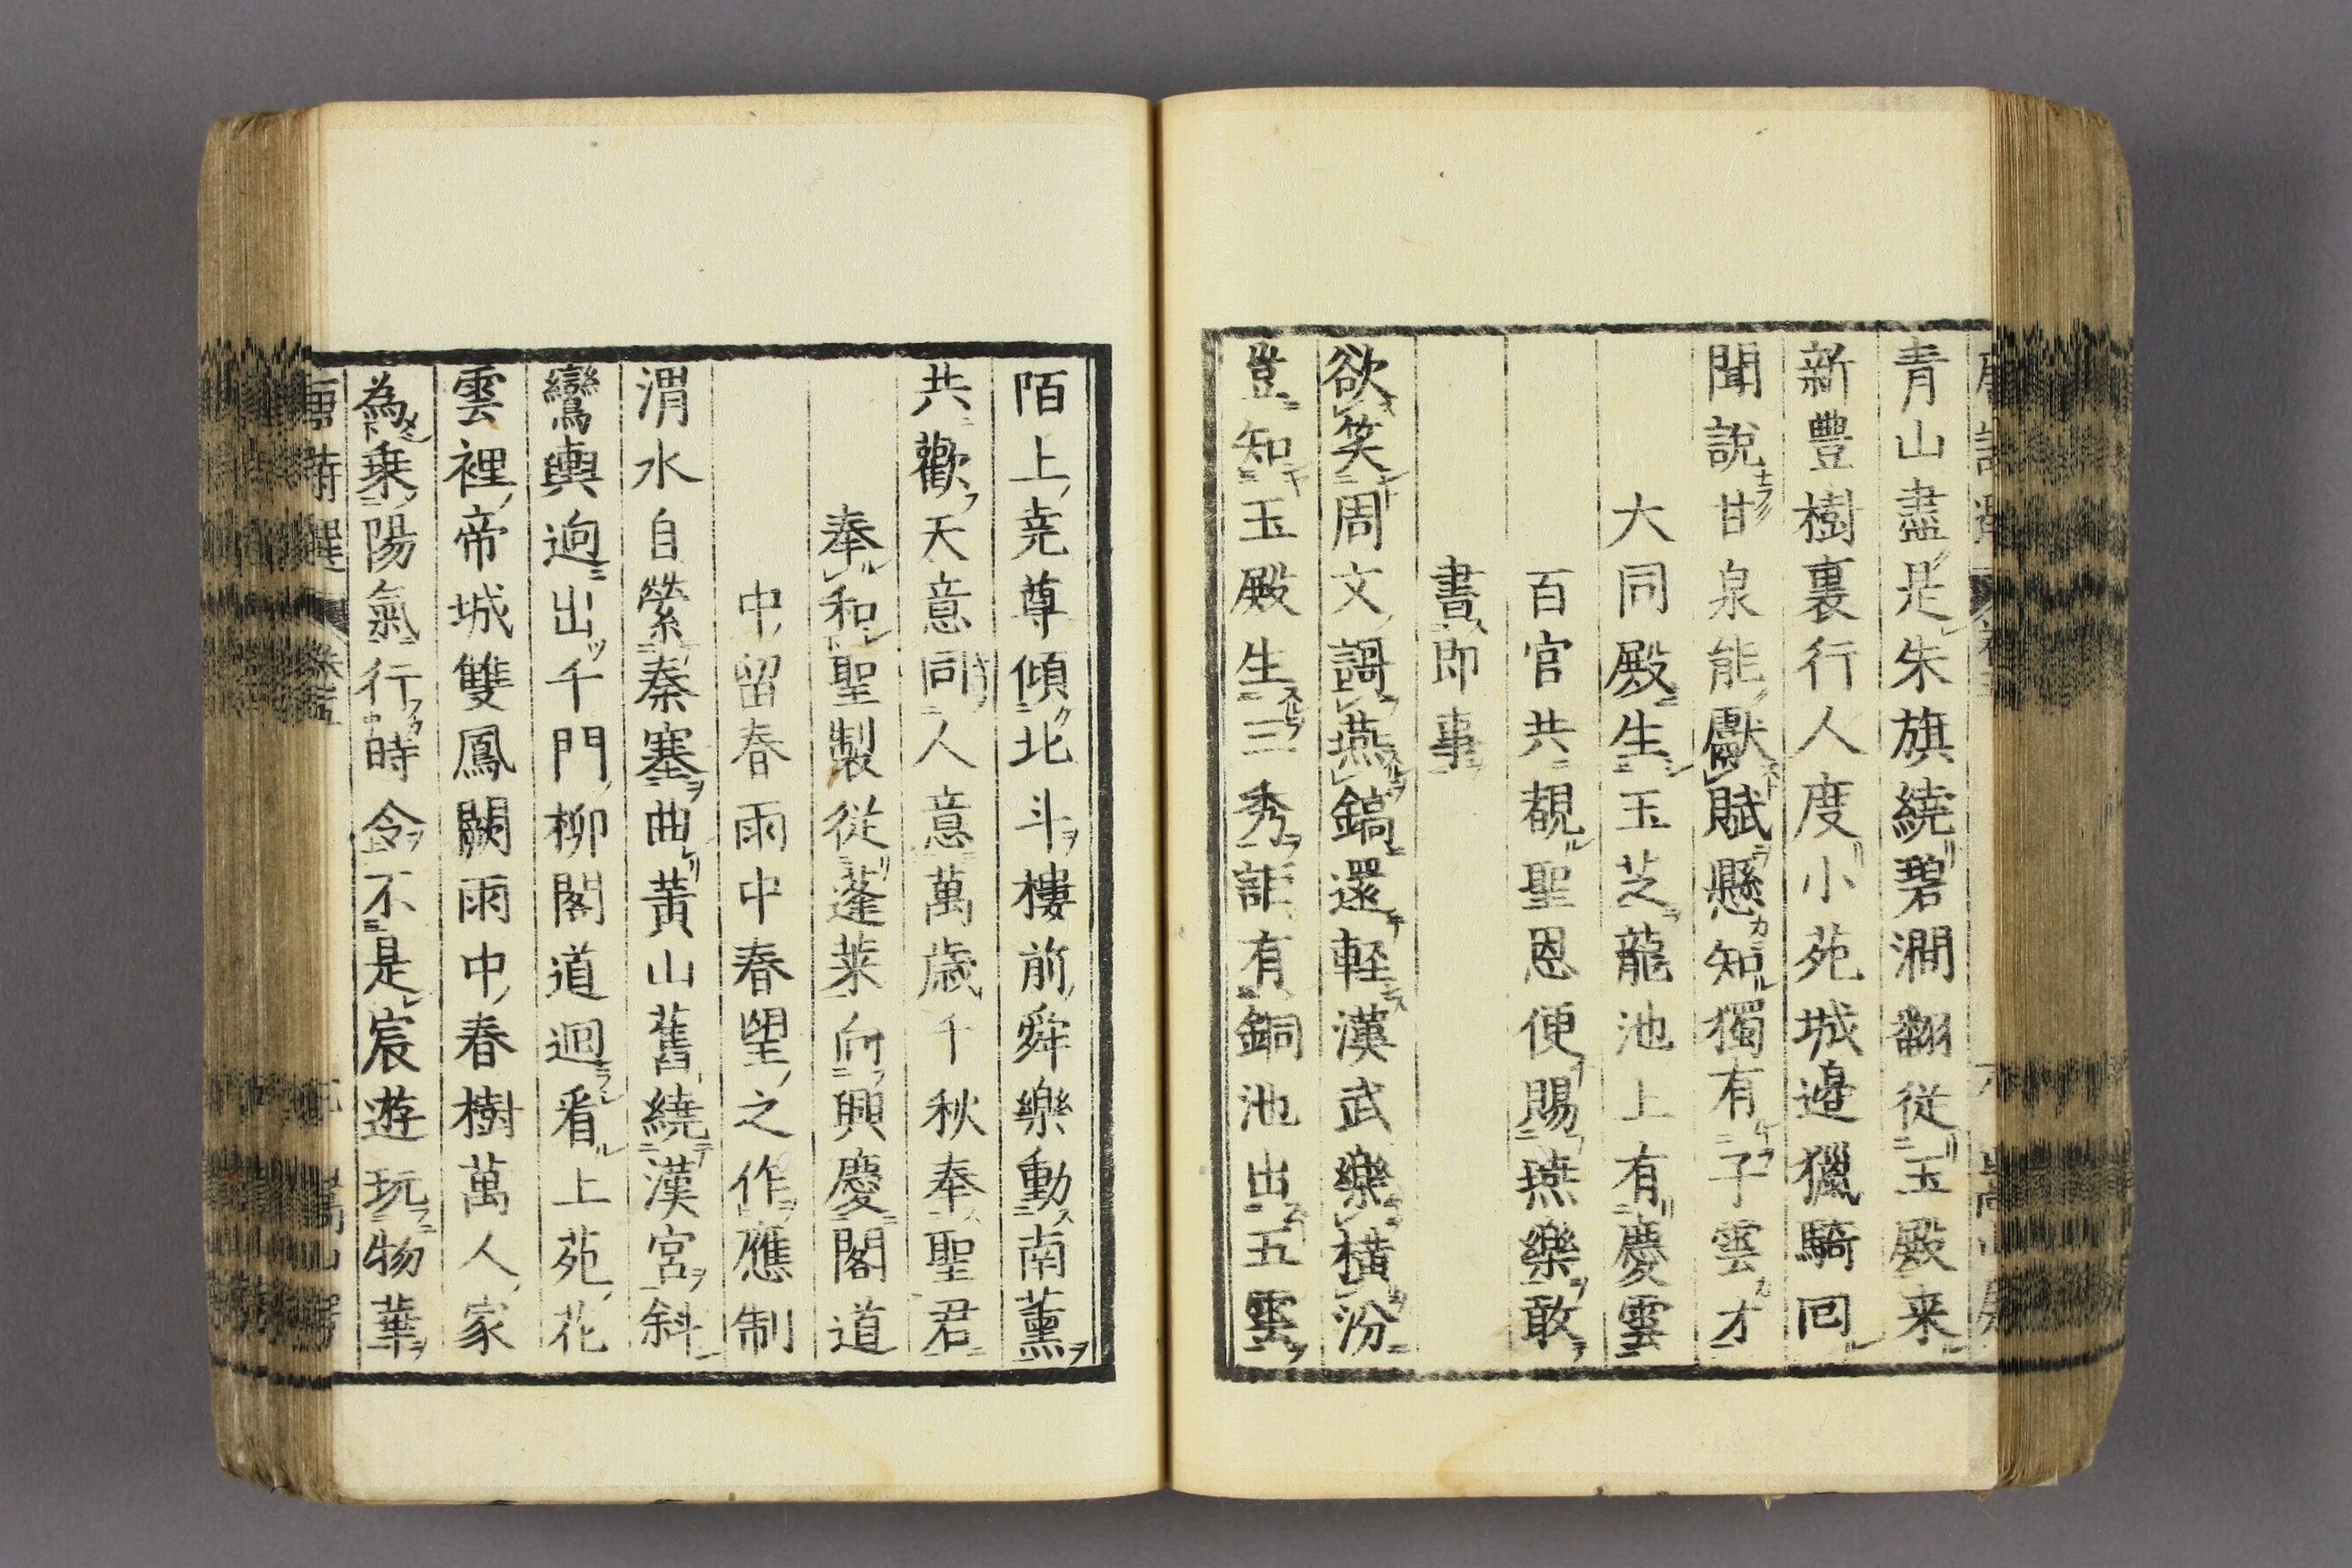 青山盡是朱旗繞碧澗翻從玉殿来
新豐樹裏行人度小苑城邉獵騎回
聞說甘泉能獻賦懸知獨有子雲才
大同殿生玉芝龍池上有慶雲
百官共覩聖恩便賜燕樂敢
書即事
欲笑周文謌燕鎬還軽漢武樂横汾
豈知玉殿生三秀詎有銅池出五雲
陌上尭尊傾北斗樓前舜樂動南薫
共歡天意同人意萬歳千秋奉聖君
奉和聖製從蓬莱向興慶閣道
中留春雨中春望之作應制
渭水自縈秦塞曲黄山舊繞漢宮斜
鸞輿逈出千門柳閣道迴看上苑花
雲裡帝城雙鳳闕雨中春樹萬人家
為乗陽氣行時令不是宸遊玩物華
唐詩選